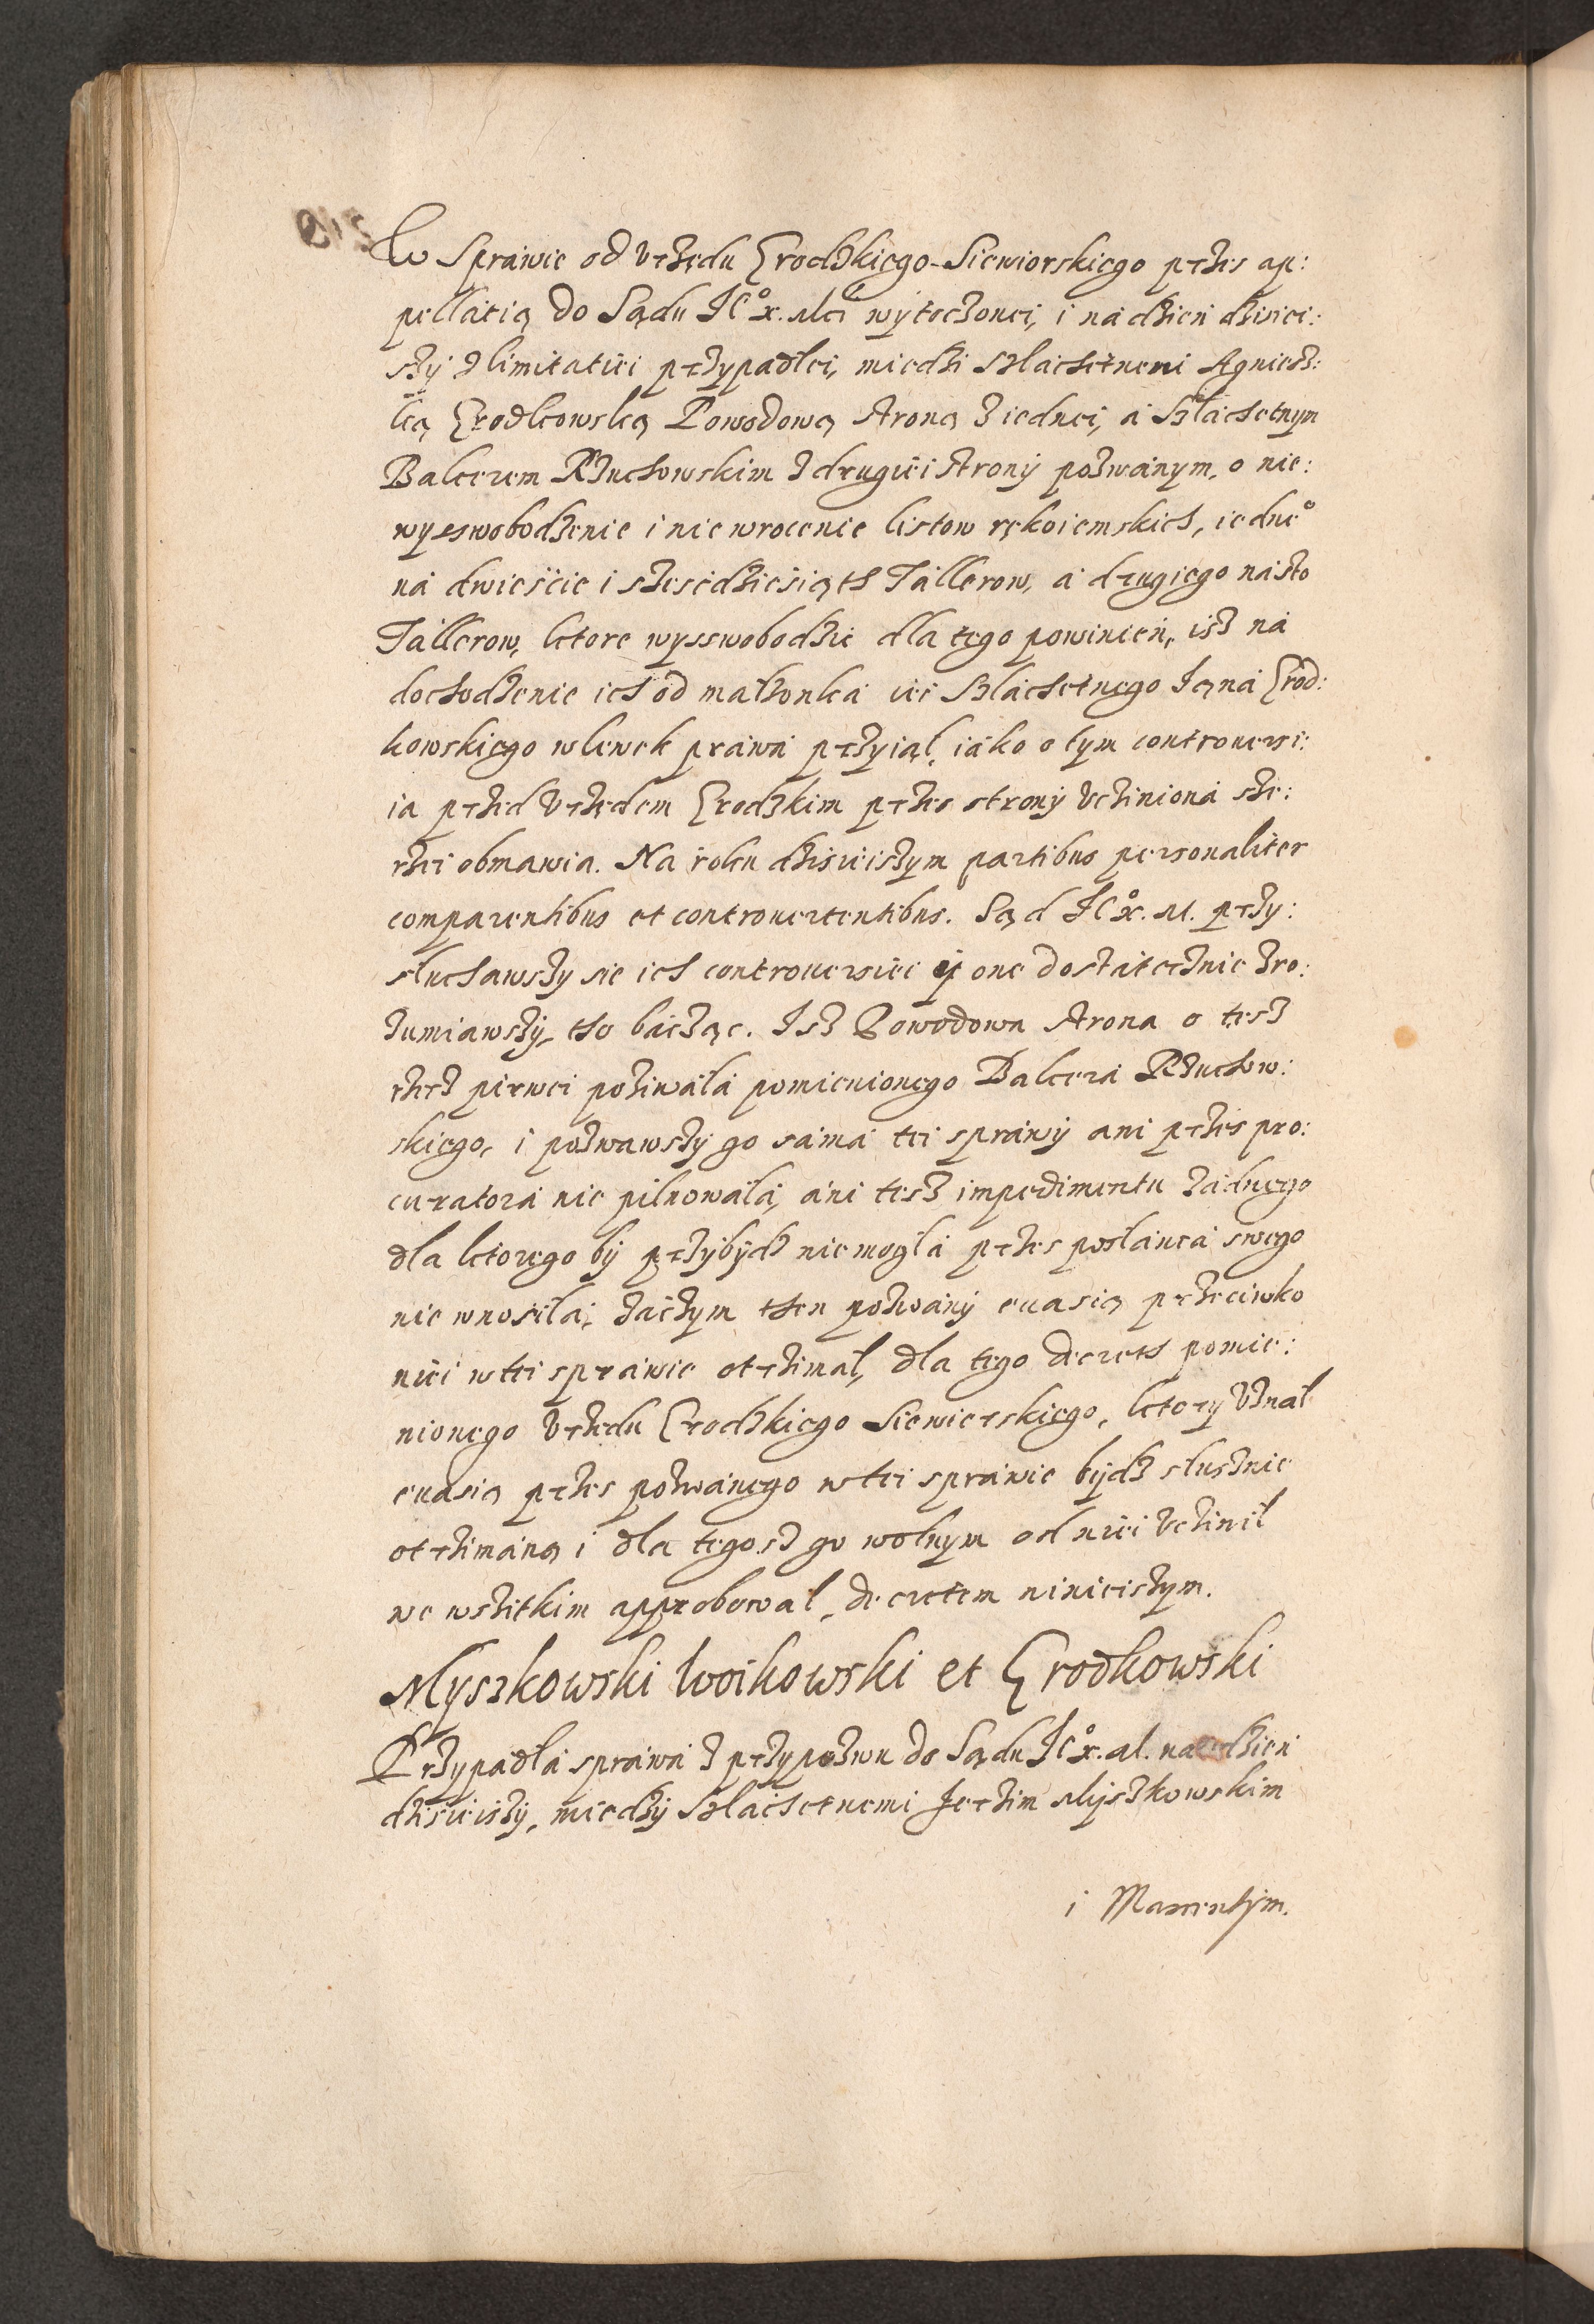 W Sprawie od Vrzędu Grodzkiego Siewiorskiego przes ap:
pellatią do Sądu JE° X. Mci wytoczonei, i na dzien dzisiei:
szy z limitatiei przypadłei, miedzi Szlachetnemi Agniesz:
ką Grodkowską Powodową stroną z iednei, a Szlachetnym
Balcerem Rzuchowskim z drugiei strony pozwanym, o nie:
wyswobodzenie i nie wrocenie listow rękoiemskich, iedne°
na dwieście i szescdziesiąth Tallerow, a drugiego na sto
Tallerow, ktore wysswobodzic dla tego powinien, isz na
dochodzenie ich od małzonka iei Szlachetnego Jana Grod:
kowskiego wlewek prawa przyiął, iako o tym controuersi:
ia przed Vrzędem Grodzkim przes strony Vcziniona sze:
rzei obmawia. Na roku dzisieiszym partibus personaliter
comparentibus et controuertentibus. Sąd JE° X. M. przy:
słuchawszy sie ich controuersiei y one dostatecznie zro:
zumiawszy, tho bacząc. Isz Powodowa strona o tesz
rzecz pierwei poziwała pomienionego Balcera Rzuchow:
skiego, i pozwawszy go sama tei sprawy ani przes pro:
curatora nie pilnowała, ani tesz impedimentu zadnego
dla ktorego by przybydz nie mogła przes posłanca swego
nie wnosiła; zaczym then pozwany euasią przeciwko
niei w tei sprawie otrzimał, dla tego decreth pomie:
nionego Vrzedu Grodzkiego Siewierskiego, ktory Vznał
euasią przes pozwanego w tei sprawie bydz słusznie
otrzimaną i dla tegosz go wolnym od niei Vczinił
we wszitkim approbował, decretem ninieiszym.
Myszkowski Woikowski et Grodkowski
Przypadła sprawa z przypozwu do Sądu JE° X. M. na dzien
dzisieiszy, miedzy Szlachetnemi Jerzim Myszkowskim
i Marcentym.